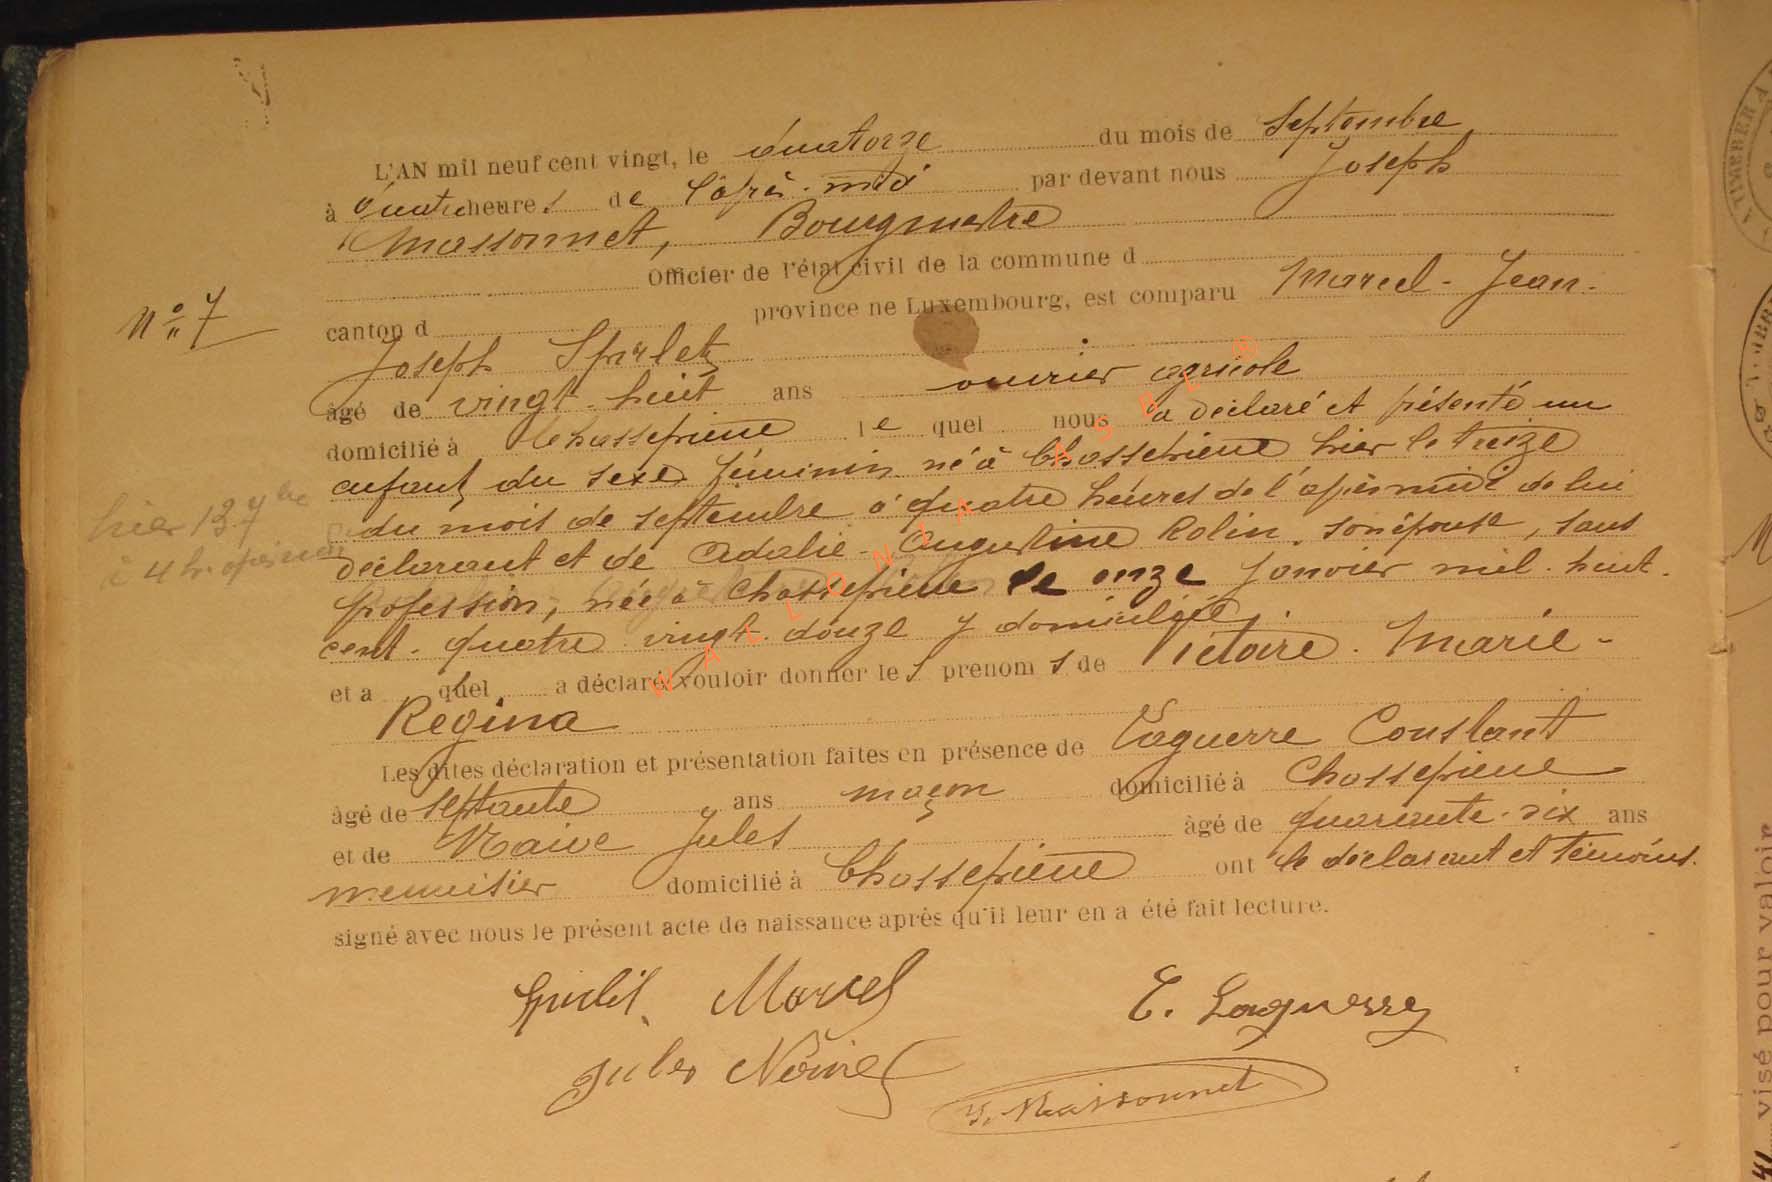 L'AN mil neuf cent vingt, le quatorze du mois de Septembre
à quatre heures de l'après-midi par devant nous Joseph
Massonnet, Bourgmestre
Officier de l'état civil de la commune d
canton d province ne Luxembourg, est comparu Marcel-Jean-
N° 7
Joseph Spirlet
âgé de vingt-huit ans ouvrier agricole
domicilié à Chassepierre le quel nous a déclaré et présenté un
enfant du sexe féminin né à Chassepierre hier le treize
hier 13 7bre
à 4 h. après midi
du mois de septembre à quatre heures de l'après midi de lui
déclarant et de Adalie-Augustine Rolin, son épouse, sans
profession, née à Chassepierre le onze Janvier mil-huit-
cent-quatre vingt-douze y domiciliée
et a quel a déclaré vouloir donner les prenoms de Victoire-Marie-
Regina
Les dites déclaration et présentation faites en présence de Laguerre Constant
âgé de septante ans maçon domicilié à Chassepierre
et de Naive Jules âgé de quarante-dix ans
menuisier domicilié à Chassepierre ont le déclarant et témoins
signé avec nous le présent acte de naissance après qu'il leur en a été fait lecture.
Spirlet Marcel C. Laguerre
Jules Naive J. Massonnet
WALLONIA ASBL ®
visé pour valoir